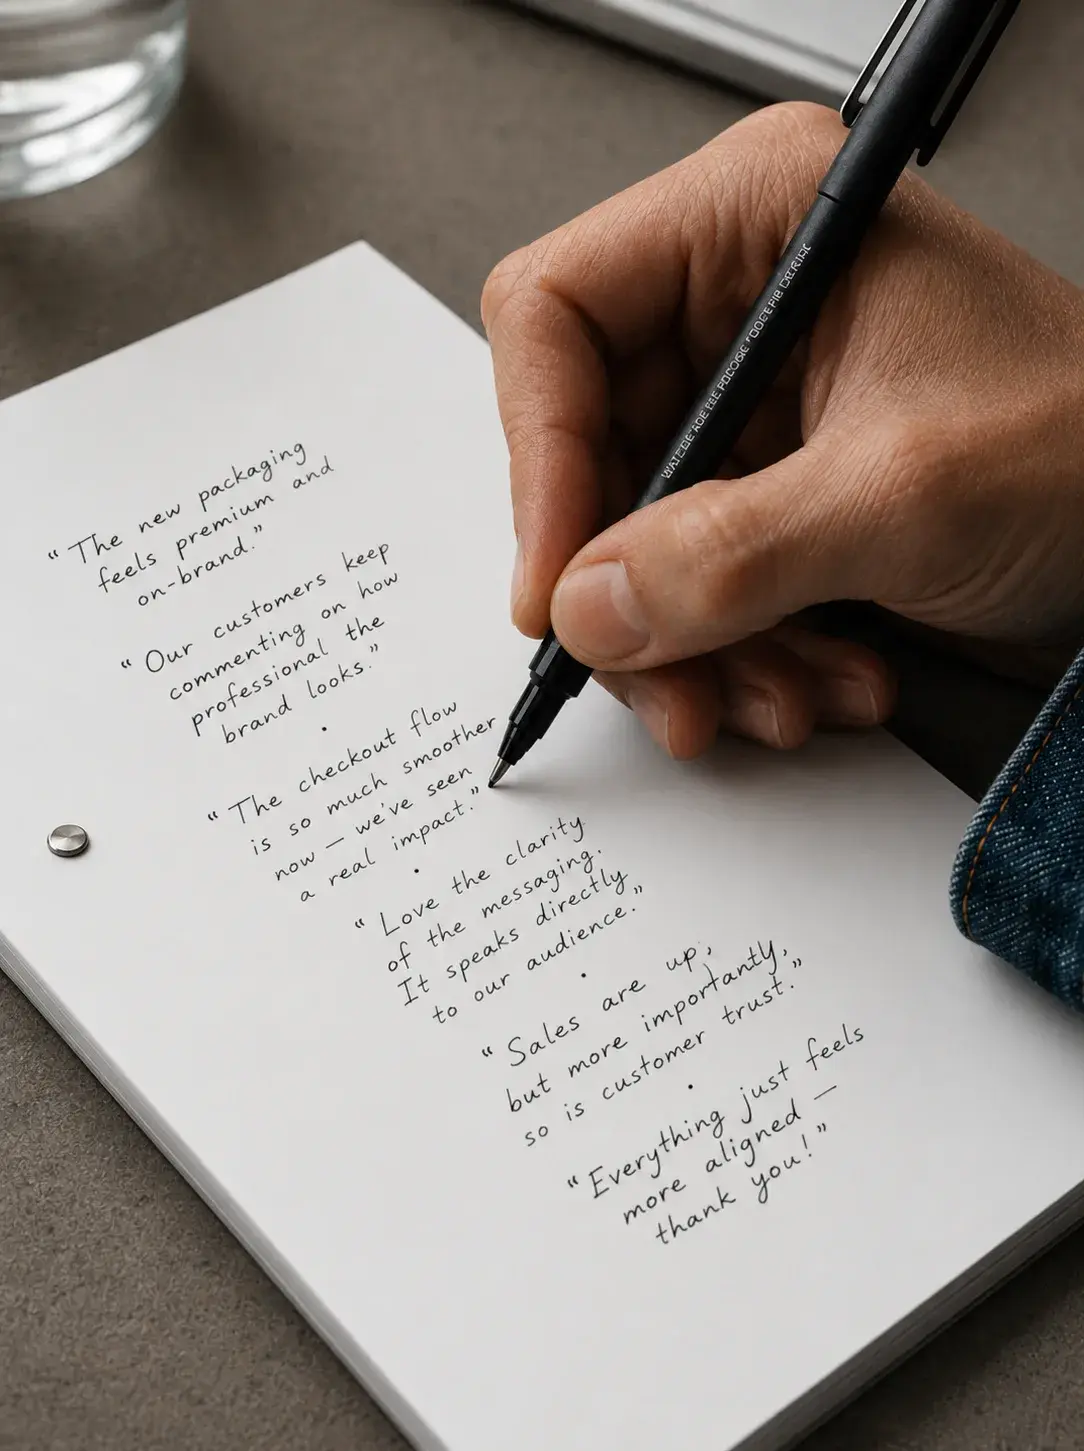 “The new packaging
feels premium and
on-brand.”
“Our customers keep
commenting on how
professional the
brand looks.”
•
“The checkout flow
is so much smoother
now — we've seen
a real impact.”
•
“Love the clarity
of the messaging.
It speaks directly
to our audience.”
•
“Sales are up;
but more importantly,
so is customer trust.”
•
“Everything just feels
more aligned —
thank you!”